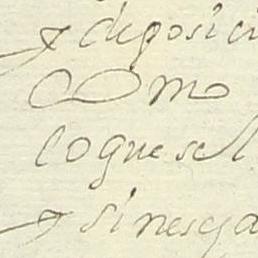 y deposici
Como
loque sel
y sinesca